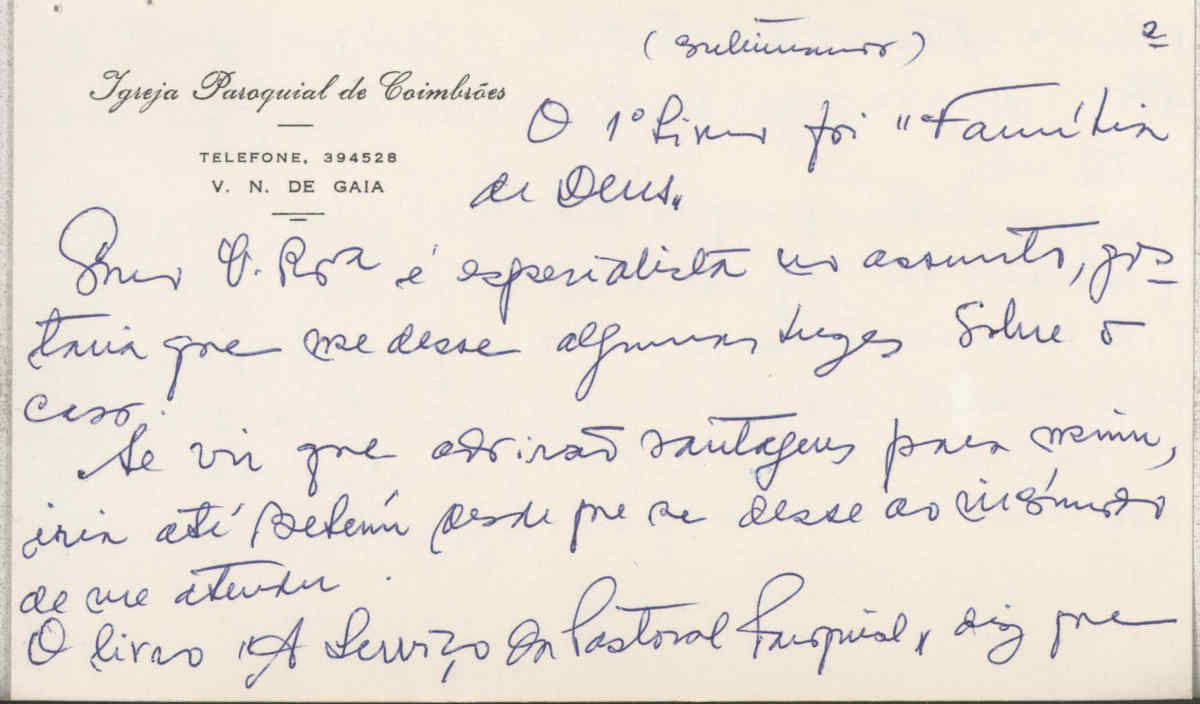 2
Igreja Paroquial de Coimbrões
TELEFONE, 394528
V. N. DE GAIA
O 1º Livro foi "Família
de Deus"
Como V. Rva é especialista no assunto, gos-
taria que me desse algumas luzes sobre o
caso.
Se vir que advirão vantagens para mim,
iria até Setúbal desde que se desse ao incómodo
de me atender.
O livro "A Serviço da Pastoral Paroquial" diz que